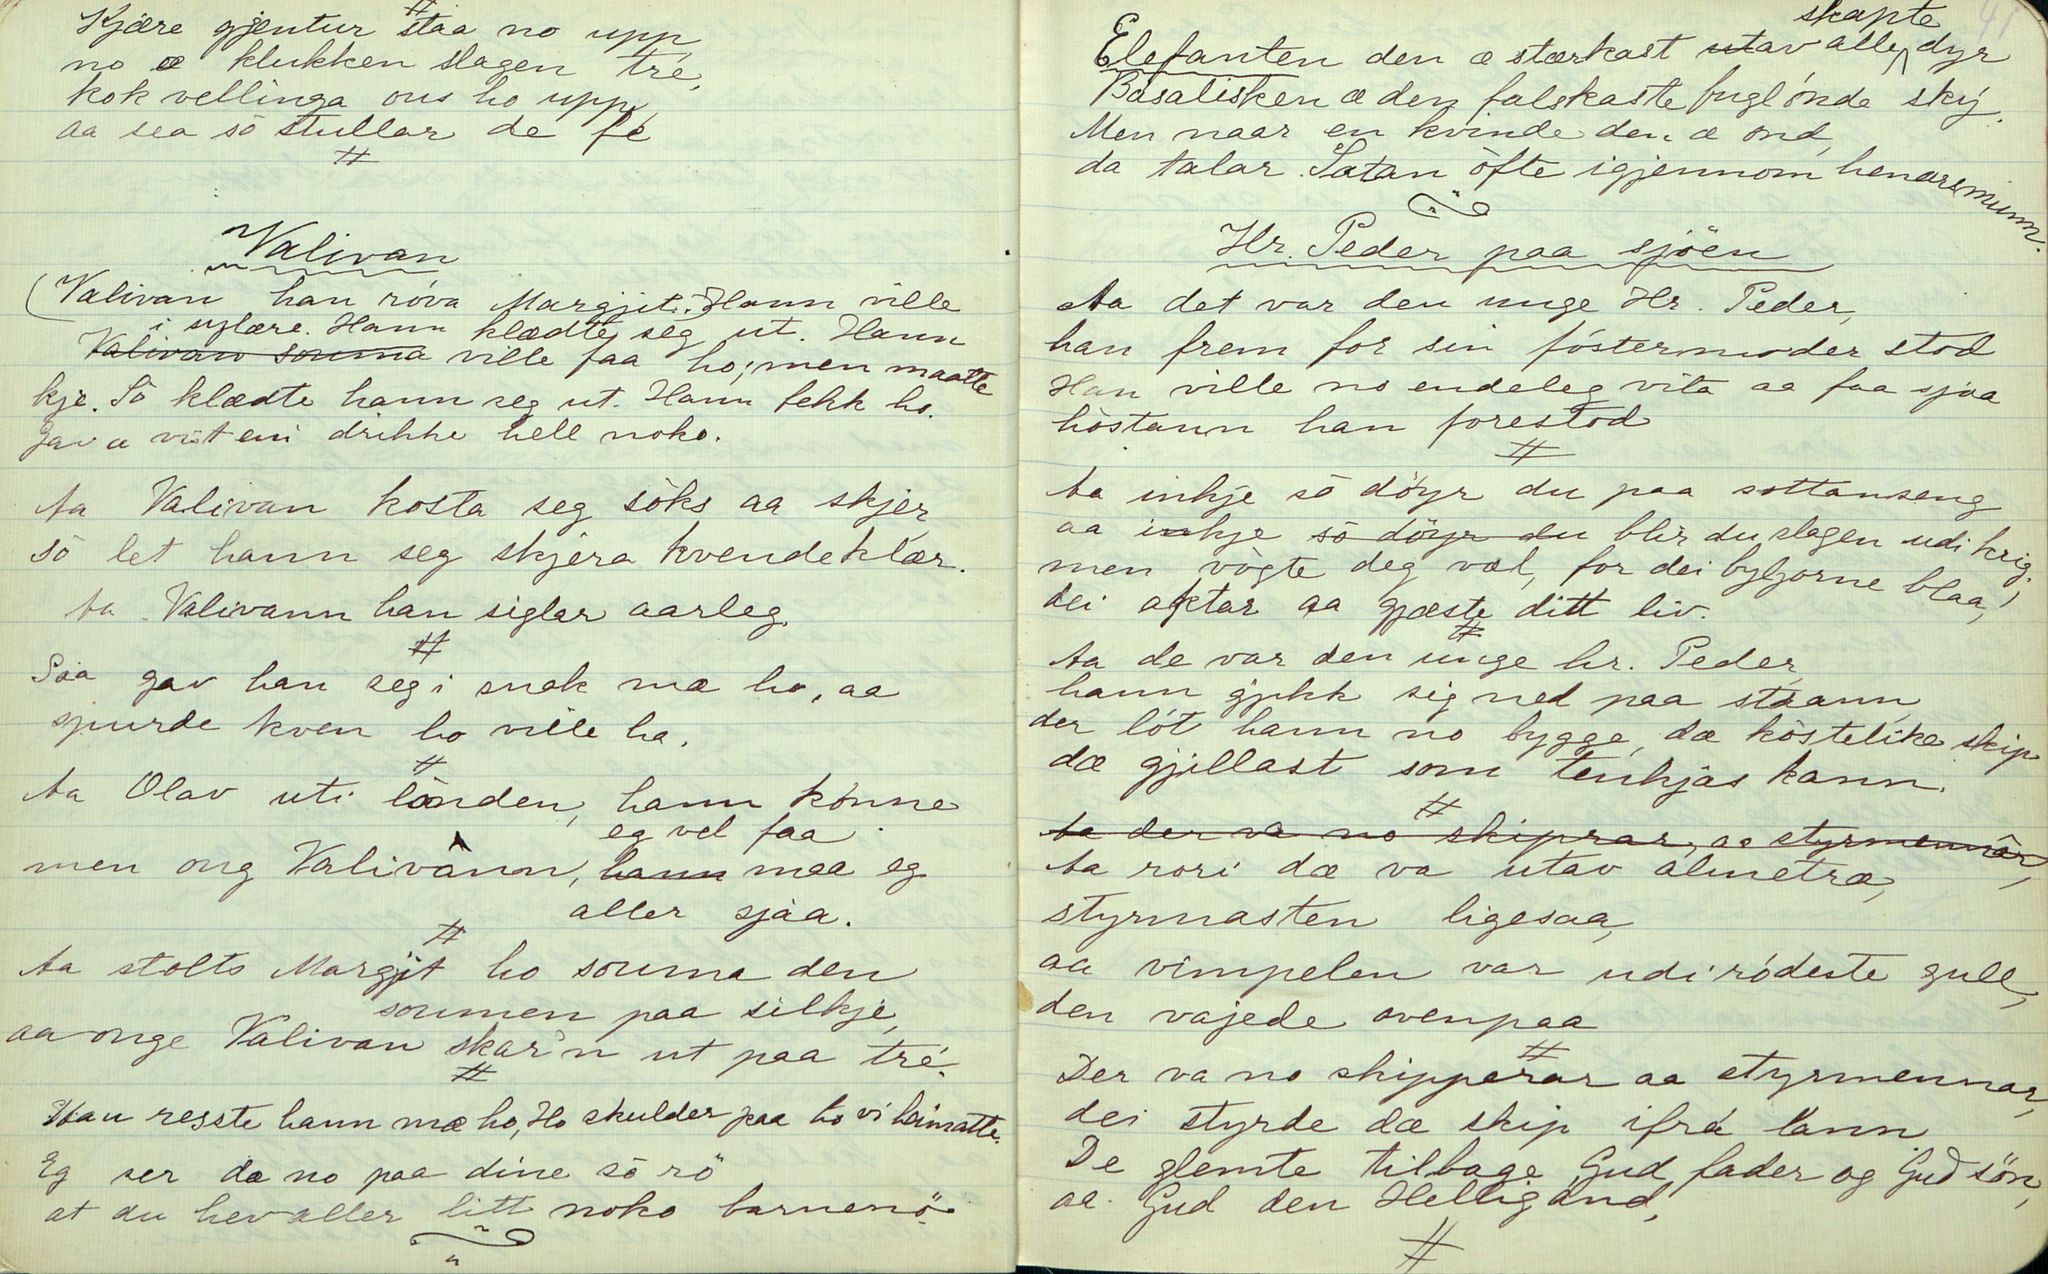 Kjære gjentur staa no upp,
no æ klukken slagen tre,
kok vellinga ous ho upp,
aa sea sö stullar de fe
#
Valivan
(Valivan han röva Margjit. Hann ville
i uglære. Hann klædte seg ut. Hann
Valivan souma ville faa ho; men maatte
kje. Sö klædte hann seg ut. Hann fekk ho.
Gav a vist ein drikke hell noko.
Aa Valivan kosta seg söks aa skjer,
sö let hann seg skjera kvendeklær.
Aa Valivann han siglar aarleg.
#
Saa gav han seg i snak mæ ho, aa
spurde kven ho ville ha.
#
Aa Olav uti lönden, hann konne
eg vel faa
men ong Valivann, hann maa eg
aller sjaa.
#
Aa stolts Margjit ho souma den
soumen paa silkje,
aa onge Valivan skar'n ut paa tré.
#
Han resste hann mæ ho, Ho skulder paa ho vi heimatte.
Eg ser da no paa dine sö rö
at du hev aller litt noko barnenö.
41
skapte
Elefanten den æ stærkast utav alle dyr
Basalisken æ den falskaste fugl önde sky.
Men naar en kvinde den æ ond,
da talar Satan öfte igjennom hendres munn.
Hr. Peder paa sjöen
Aa det var den unge Hr. Peder,
han frem for sin fóstermoder stod
Han ville no endeleg vita aa faa sjaa
hòstann han forestod
#
Aa inkje sö döyr du paa sottanseng
aa inkje sö döyr du blir du slagen udi krig,
men vògte deg væl, for dei bylgjorne blaa,
dei aktar aa gjæste ditt liv.
#
Aa de var den unge hr. Peder,
hann gjikk sig ned paa straann,
der lót hann no bygge, dæ kòstelike skip
dæ gjillast som tenkjas kann.
#
Aa der va no skiprar, aa styrmennar,
Aa rori dæ va utav almetræ,
styrmasten ligesaa,
aa vimpelen var udi rödeste gull,
den vajede ovenpaa
#
Der va no skipperar aa styrmennar,
dei styrde dæ skip ifrá lann,
De glemte tilbage Gud fader og Gud sön,
aa Gud den Helligånd,
#